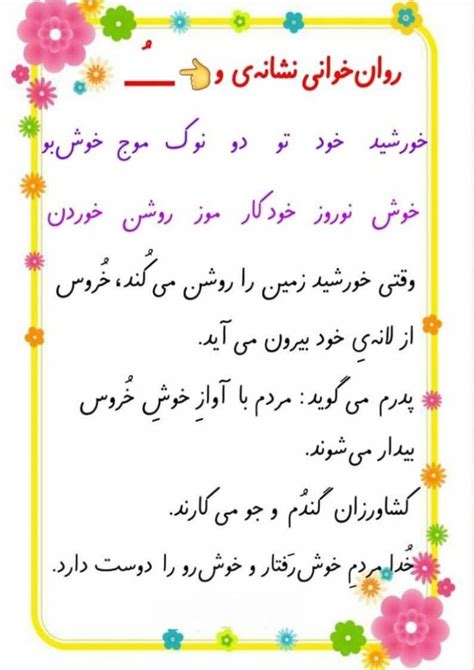 روان‌خوانی نشانه‌ی و 👈 ـُـ
خورشید خود تو دو نوک موج خوش‌بو
خوش نوروز خودکار موز روشن خوردن
وقتی خورشید زمین را روشن می‌کُند، خُروس
از لانه‌یِ خود بیرون می‌آید.
پدرم می‌گوید: مردم با آوازِ خوشِ خُروس
بیدار می‌شوند.
کشاورزان گندُم و جو می‌کارند.
خُدا مردمِ خوش‌رَفتار و خوش‌رو را دوست دارد.